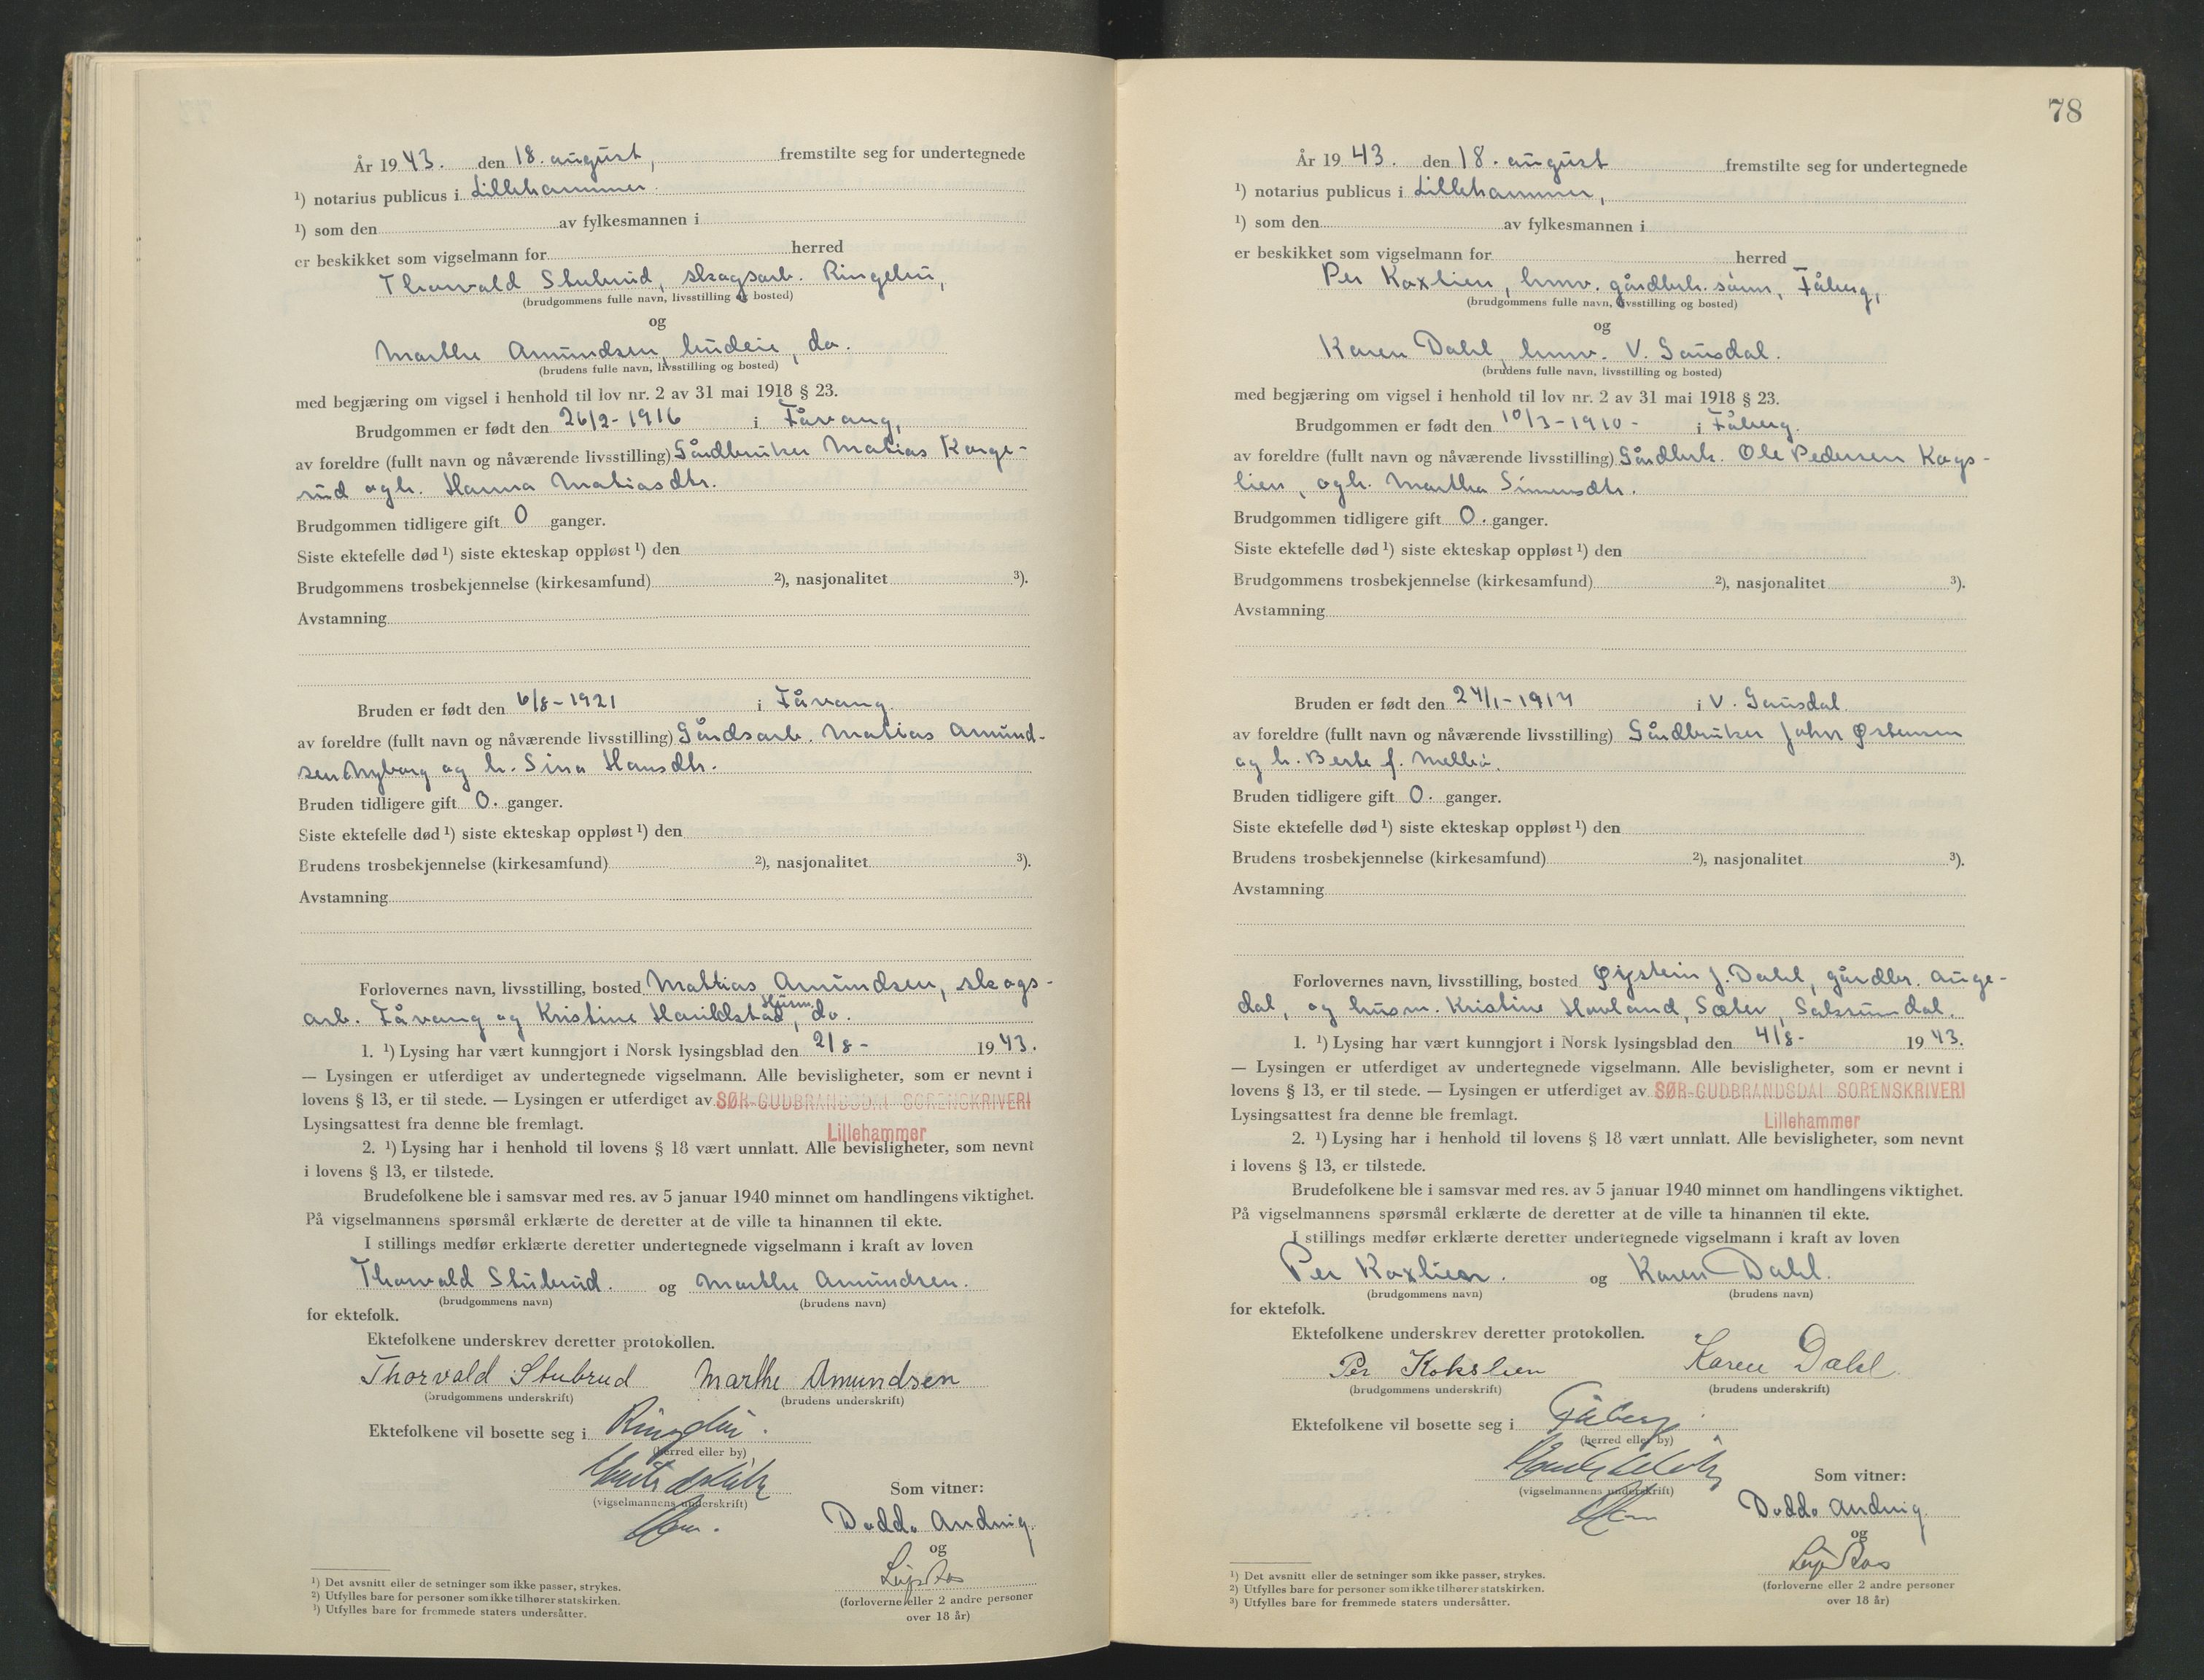 År 1943. den 18. august, fremstilte seg for undertegnede
¹) notarius publicus i Lillehammer.
¹) som den av fylkesmannen i
er beskikket som vigselmann for herred
Thorvald Stubrud, skogsarb. Ringebu,
(brudgommens fulle navn, livsstilling og bosted)
og
Marthe Amundsen, budeie, do.
(brudens fulle navn, livsstilling og bosted)
med begjæring om vigsel i henhold til lov nr. 2 av 31 mai 1918 § 23.
Brudgommen er født den 26/2-1916 i Fåvang,
av foreldre (fullt navn og nåværende livsstilling) Gårdbruker Matias Korge-
rud og h. Hanna Matiasdtr.
Brudgommen tidligere gift 0 ganger.
Siste ektefelle død ¹) siste ekteskap oppløst ¹) den
Brudgommens trosbekjennelse (kirkesamfund) ²), nasjonalitet ³).
Avstamning
Bruden er født den 6/8-1921 i Fåvang.
av foreldre (fullt navn og nåværende livsstilling) Gårdsarb. Matias Amund-
sen Nyborg og h. Sina Hansdtr.
Bruden tidligere gift 0. ganger.
Siste ektefelle død ¹) siste ekteskap oppløst ¹) den
Brudens trosbekjennelse (kirkesamfund) ²), nasjonalitet ³).
Avstamning
Forlovernes navn, livsstilling, bosted Mattias Amundsen, skogs-
arb. Fåvang og Kristine Harildstad, Husm. do.
1. ¹) Lysing har vært kunngjort i Norsk lysingsblad den 2/8- 1943.
— Lysingen er utferdiget av undertegnede vigselmann. Alle bevisligheter, som er nevnt i
lovens § 13, er til stede. — Lysingen er utferdiget av SØR-GUDBRANDSDAL SORENSKRIVERI
Lysingsattest fra denne ble fremlagt.
Lillehammer
2. ¹) Lysing har i henhold til lovens § 18 vært unnlatt. Alle bevisligheter, som nevnt
i lovens § 13, er tilstede.
Brudefolkene ble i samsvar med res. av 5 januar 1940 minnet om handlingens viktighet.
På vigselmannens spørsmål erklærte de deretter at de ville ta hinannen til ekte.
I stillings medfør erklærte deretter undertegnede vigselmann i kraft av loven
Thorvald Stubrud. og Marthe Amundsen.
(brudgommens navn) (brudens navn)
for ektefolk.
Ektefolkene underskrev deretter protokollen.
Thorvald Stubrud Marthe Amundsen
(brudgommens underskrift) (brudens underskrift)
Ektefolkene vil bosette seg i Ringebu.
(herred eller by)
(vigselmannens underskrift)
Som vitner:
Doddo Andvig
og
(forloverne eller 2 andre personer
over 18 år)
¹) Det avsnitt eller de setninger som ikke passer, strykes.
²) Utfylles bare for personer som ikke tilhører statskirken.
³) Utfylles bare for fremmede staters undersåtter.
78
År 1943. den 18. august fremstilte seg for undertegnede
¹) notarius publicus i Lillehammer,
¹) som den av fylkesmannen i
er beskikket som vigselmann for herred
Per Koxlien, hmv. gårdbrk. sønn, Fåberg,
(brudgommens fulle navn, livsstilling og bosted)
og
Karen Dahl, hmv. V. Gausdal.
(brudens fulle navn, livsstilling og bosted)
med begjæring om vigsel i henhold til lov nr. 2 av 31 mai 1918 § 23.
Brudgommen er født den 10/3-1910- i Fåberg.
av foreldre (fullt navn og nåværende livsstilling) Gårdbrk. Ole Pedersen Kogs-
lien, og h. Martha Simensdtr.
Brudgommen tidligere gift 0. ganger.
Siste ektefelle død ¹) siste ekteskap oppløst ¹) den
Brudgommens trosbekjennelse (kirkesamfund) ²), nasjonalitet ³).
Avstamning
Bruden er født den 24/1-1914 i V. Gausdal.
av foreldre (fullt navn og nåværende livsstilling) Gårdbruker John Østensen
og h. Berte f. Mellbø.
Bruden tidligere gift 0. ganger.
Siste ektefelle død ¹) siste ekteskap oppløst ¹) den
Brudens trosbekjennelse (kirkesamfund) ²), nasjonalitet ³).
Avstamning
Forlovernes navn, livsstilling, bosted Øystein J. Dahl, gårdbr. Auge-
dal, og husm. Kristine Hovland, Sæter,
1. ¹) Lysing har vært kunngjort i Norsk lysingsblad den 4/8- 1943.
— Lysingen er utferdiget av undertegnede vigselmann. Alle bevisligheter, som er nevnt i
lovens § 13, er til stede. — Lysingen er utferdiget av SØR-GUDBRANDSDAL SORENSKRIVERI
Lysingsattest fra denne ble fremlagt.
Lillehammer
2. ¹) Lysing har i henhold til lovens § 18 vært unnlatt. Alle bevisligheter, som nevnt
i lovens § 13, er tilstede.
Brudefolkene ble i samsvar med res. av 5 januar 1940 minnet om handlingens viktighet.
På vigselmannens spørsmål erklærte de deretter at de ville ta hinannen til ekte.
I stillings medfør erklærte deretter undertegnede vigselmann i kraft av loven
Per Koxlien. og Karen Dahl.
(brudgommens navn) (brudens navn)
for ektefolk.
Ektefolkene underskrev deretter protokollen.
Per Kokslien Karen Dahl
(brudgommens underskrift) (brudens underskrift)
Ektefolkene vil bosette seg i Fåberg.
(herred eller by)
(vigselmannens underskrift)
Som vitner:
Doddo Andvig
og
(forloverne eller 2 andre personer
over 18 år)
¹) Det avsnitt eller de setninger som ikke passer, strykes.
²) Utfylles bare for personer som ikke tilhører statskirken.
³) Utfylles bare for fremmede staters undersåtter.